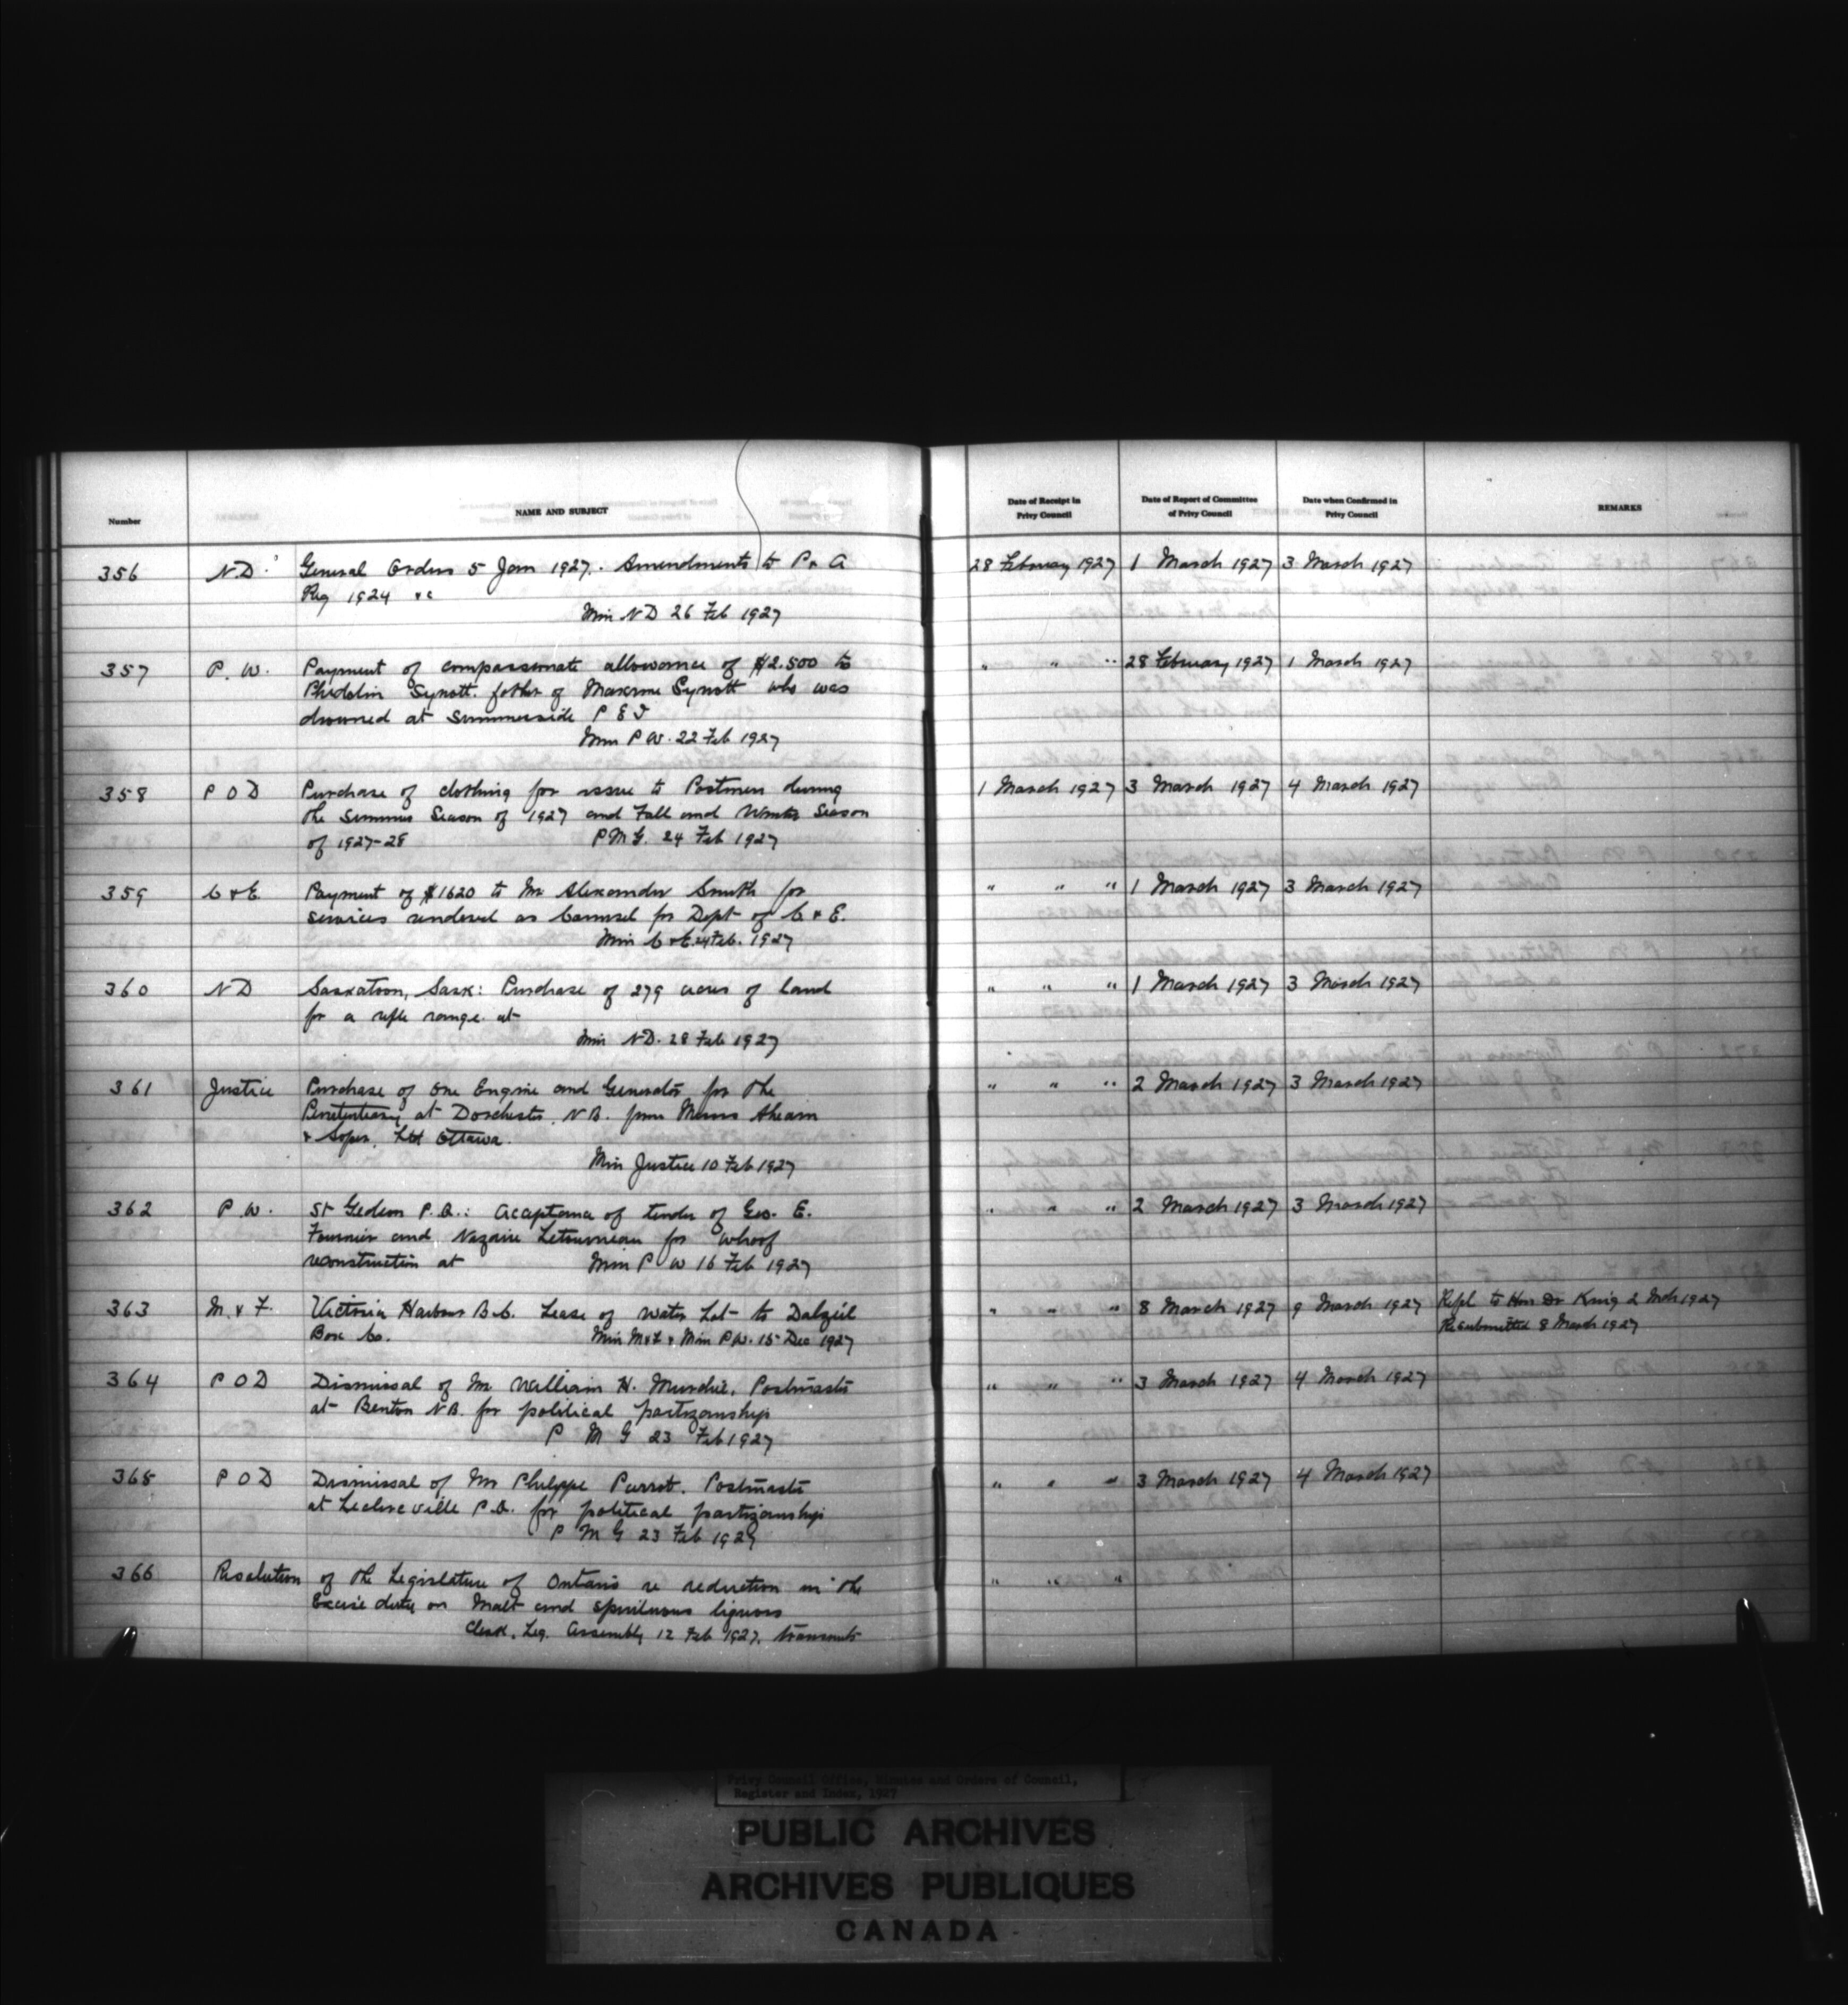 Number
NAME AND SUBJECT
Date of Receipt in Privy Council
Date of Report of Committee of Privy Council
Date when Confirmed in Privy Council
REMARKS
356 N.D. General Orders 5 Jan 1927. Amendments to P & A 28 February 1927 1 March 1927 3 March 1927
Reg 1924 &c
Min ND 26 Feb 1927
357 P. W. Payment of compassionate allowance of $2.500 to " " " 28 February 1927 1 March 1927
Phidelin Synott. father of Maxime Synott who was
drowned at Summerside P E I
Min P W. 22 Feb 1927
358 P O D Purchase of clothing for issue to Postmen during 1 March 1927 3 March 1927 4 March 1927
the Summer Season of 1927 and Fall and Winter Season
of 1927-28 P M G. 24 Feb 1927
359 C & E. Payment of $1620 to Mr Alexander Smith for " " " 1 March 1927 3 March 1927
services rendered as Counsel for Dept of C & E.
Min C & E. 24 Feb. 1927
360 ND Saskatoon, Sask: Purchase of 279 acres of land " " " 1 March 1927 3 March 1927
for a rifle range. at
Min ND. 28 Feb 1927
361 Justice Purchase of one Engine and Generator for the " " " 2 March 1927 3 March 1927
Penitentiary at Dorchester, N B. from Messrs Ahearn
& Soper, Ltd Ottawa.
Min Justice 10 Feb 1927
362 P. W. St Gedeon P. Q.: Acceptance of tender of Geo. E. " " " 2 March 1927 3 March 1927
Fournier and Nazaire Letourneau for wharf
reconstruction at Min P W 16 Feb 1927
363 M. & F. Victoria Harbour B.C. Lease of Water Lot to Dalziel " " " 8 March 1927 9 March 1927 Refd to Hon Dr King 2 Mch 1927
Box Co. Min M&F & Min P.W. 15 Dec 1927 Resubmitted 8 March 1927
364 P O D Dismissal of Mr William H. Murdie, Postmaster " " " 3 March 1927 4 March 1927
at Benton N B. for political partizanship
P M G 23 Feb 1927
365 P O D Dismissal of Mr Philippe Parrot. Postmaster " " " 3 March 1927 4 March 1927
at Leclerceville P.Q. for political partizanship
P M G 23 Feb 1927
366 Resolution of the Legislature of Ontario re reduction in the " " "
Excise duty on Malt and spirituous liquors
Clerk, Leg. Assembly 12 Feb 1927, transmits
Privy Council Office, Minutes and Orders of Council,
Register and Index, 1927
PUBLIC ARCHIVES
ARCHIVES PUBLIQUES
CANADA